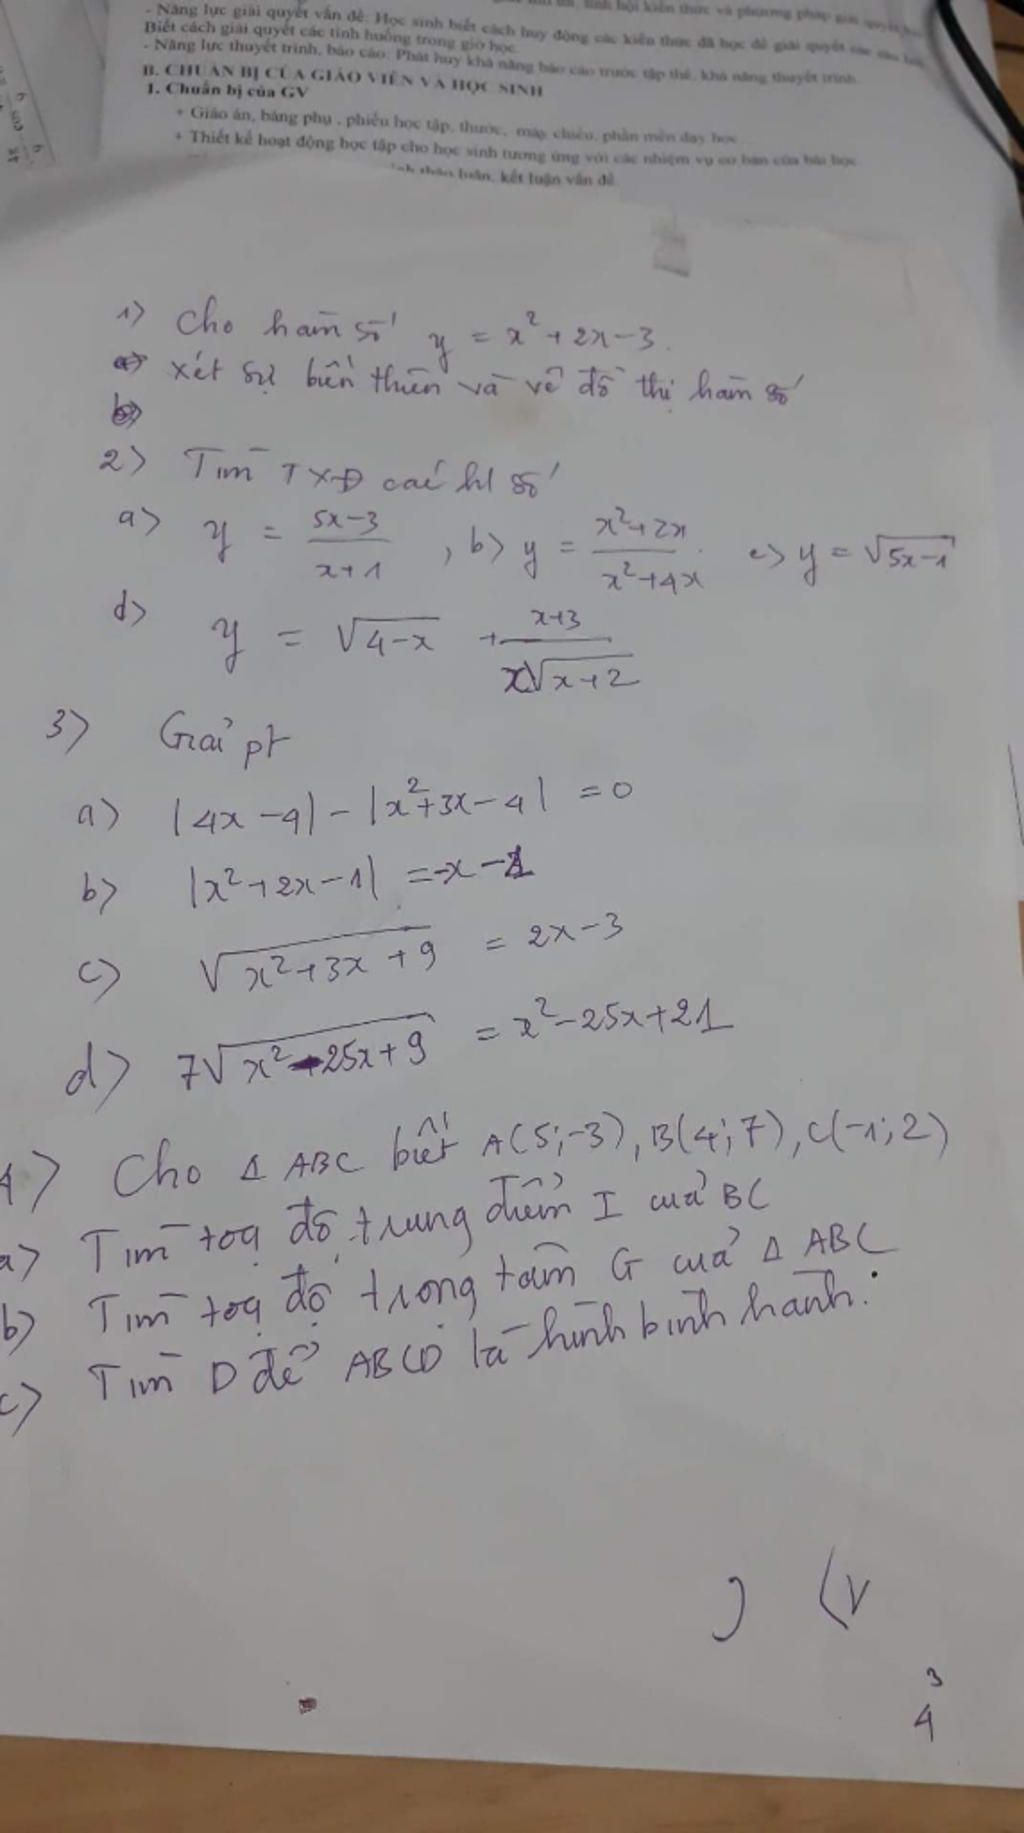 - Năng lực giải quyết vấn đề: Học sinh biết cách huy động các kiến thức đã học để giải quyết các câu hỏi
Biết cách giải quyết các tình huống trong giờ học.
- Năng lực thuyết trình, báo cáo: Phát huy khả năng báo cáo trước tập thể, khả năng thuyết trình.
B. CHUẨN BỊ CỦA GIÁO VIÊN VÀ HỌC SINH
1. Chuẩn bị của GV
+ Giáo án, bảng phụ, phiếu học tập, thước, máy chiếu, phần mềm dạy học
+ Thiết kế hoạt động học tập cho học sinh tương ứng với các nhiệm vụ cơ bản của bài học
luận, kết luận vấn đề
1) Cho hàm số y = x² + 2x - 3.
a) xét sự biến thiên và vẽ đồ thị hàm số
b)
2) Tìm TXĐ các h/ số
a) y = (5x-3)/(x+1) , b) y = (x²+2x)/(x²+4x) c) y = √(5x-1)
d) y = √(4-x) + (x+3)/(x√(x+2))
3) Giải pt
a) |4x - 9| - |x²+3x-4| = 0
b) |x²+2x-1| = -x-1
c) √(x²+3x+9) = 2x-3
d) 7√(x²-25x+9) = x²-25x+21
4) Cho Δ ABC biết A(5;-3), B(4;7), C(-1;2)
a) Tìm toạ độ trung điểm I của BC
b) Tìm toạ độ trọng tâm G của Δ ABC
c) Tìm D để ABCD là hình bình hành.
3
4